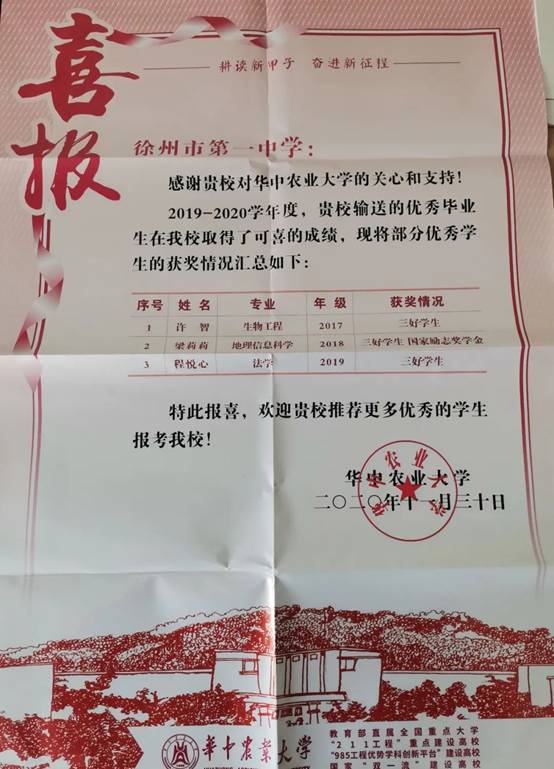 喜报
耕读新甲子 奋进新征程
徐州市第一中学：
感谢贵校对华中农业大学的关心和支持！
2019-2020学年度，贵校输送的优秀毕业
生在我校取得了可喜的成绩，现将部分优秀学
生的获奖情况汇总如下：
序号 姓名 专业 年级 获奖情况
1 许智 生物工程 2017 三好学生
2 梁莉莉 地理信息科学 2018 三好学生 国家励志奖学金
3 程悦心 法学 2019 三好学生
特此报喜，欢迎贵校推荐更多优秀的学生
报考我校！
华中农业大学
二〇二〇年十一月三十日
华中农业大学
华中农业大学
教育部直属全国重点大学
“211工程”重点建设高校
“985工程优势学科创新平台”建设高校
国家“双一流”建设高校